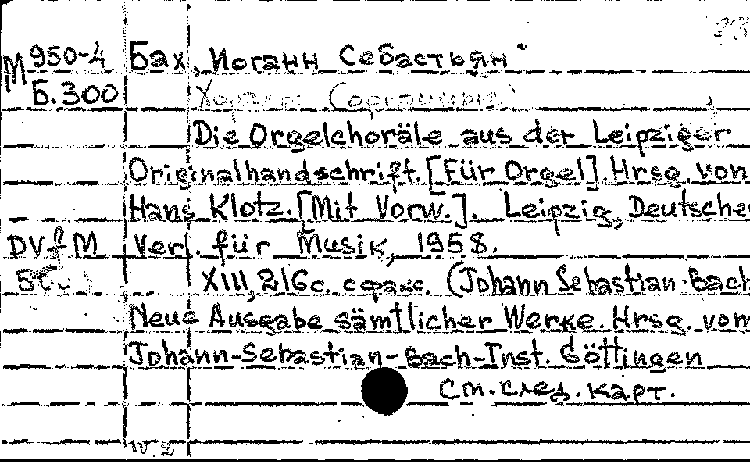 М 950-4 Бах, Иоганн Себастьян
Б.300
Die Orgelchoräle aus der Leipziger
Originalhandschrift. [Für Orgel]. Hrsg. von
Hans Klotz. [Mit Vorw.]. Leipzig, Deutscher
DVfM Verl. für Musik, 1958.
XIII, 216с. с факс. (Johann Sebastian Bach
Neue Ausgabe sämtlicher Werke. Hrsg. vom
Johann-Sebastian-Bach-Inst. Göttingen
См. след. карт.